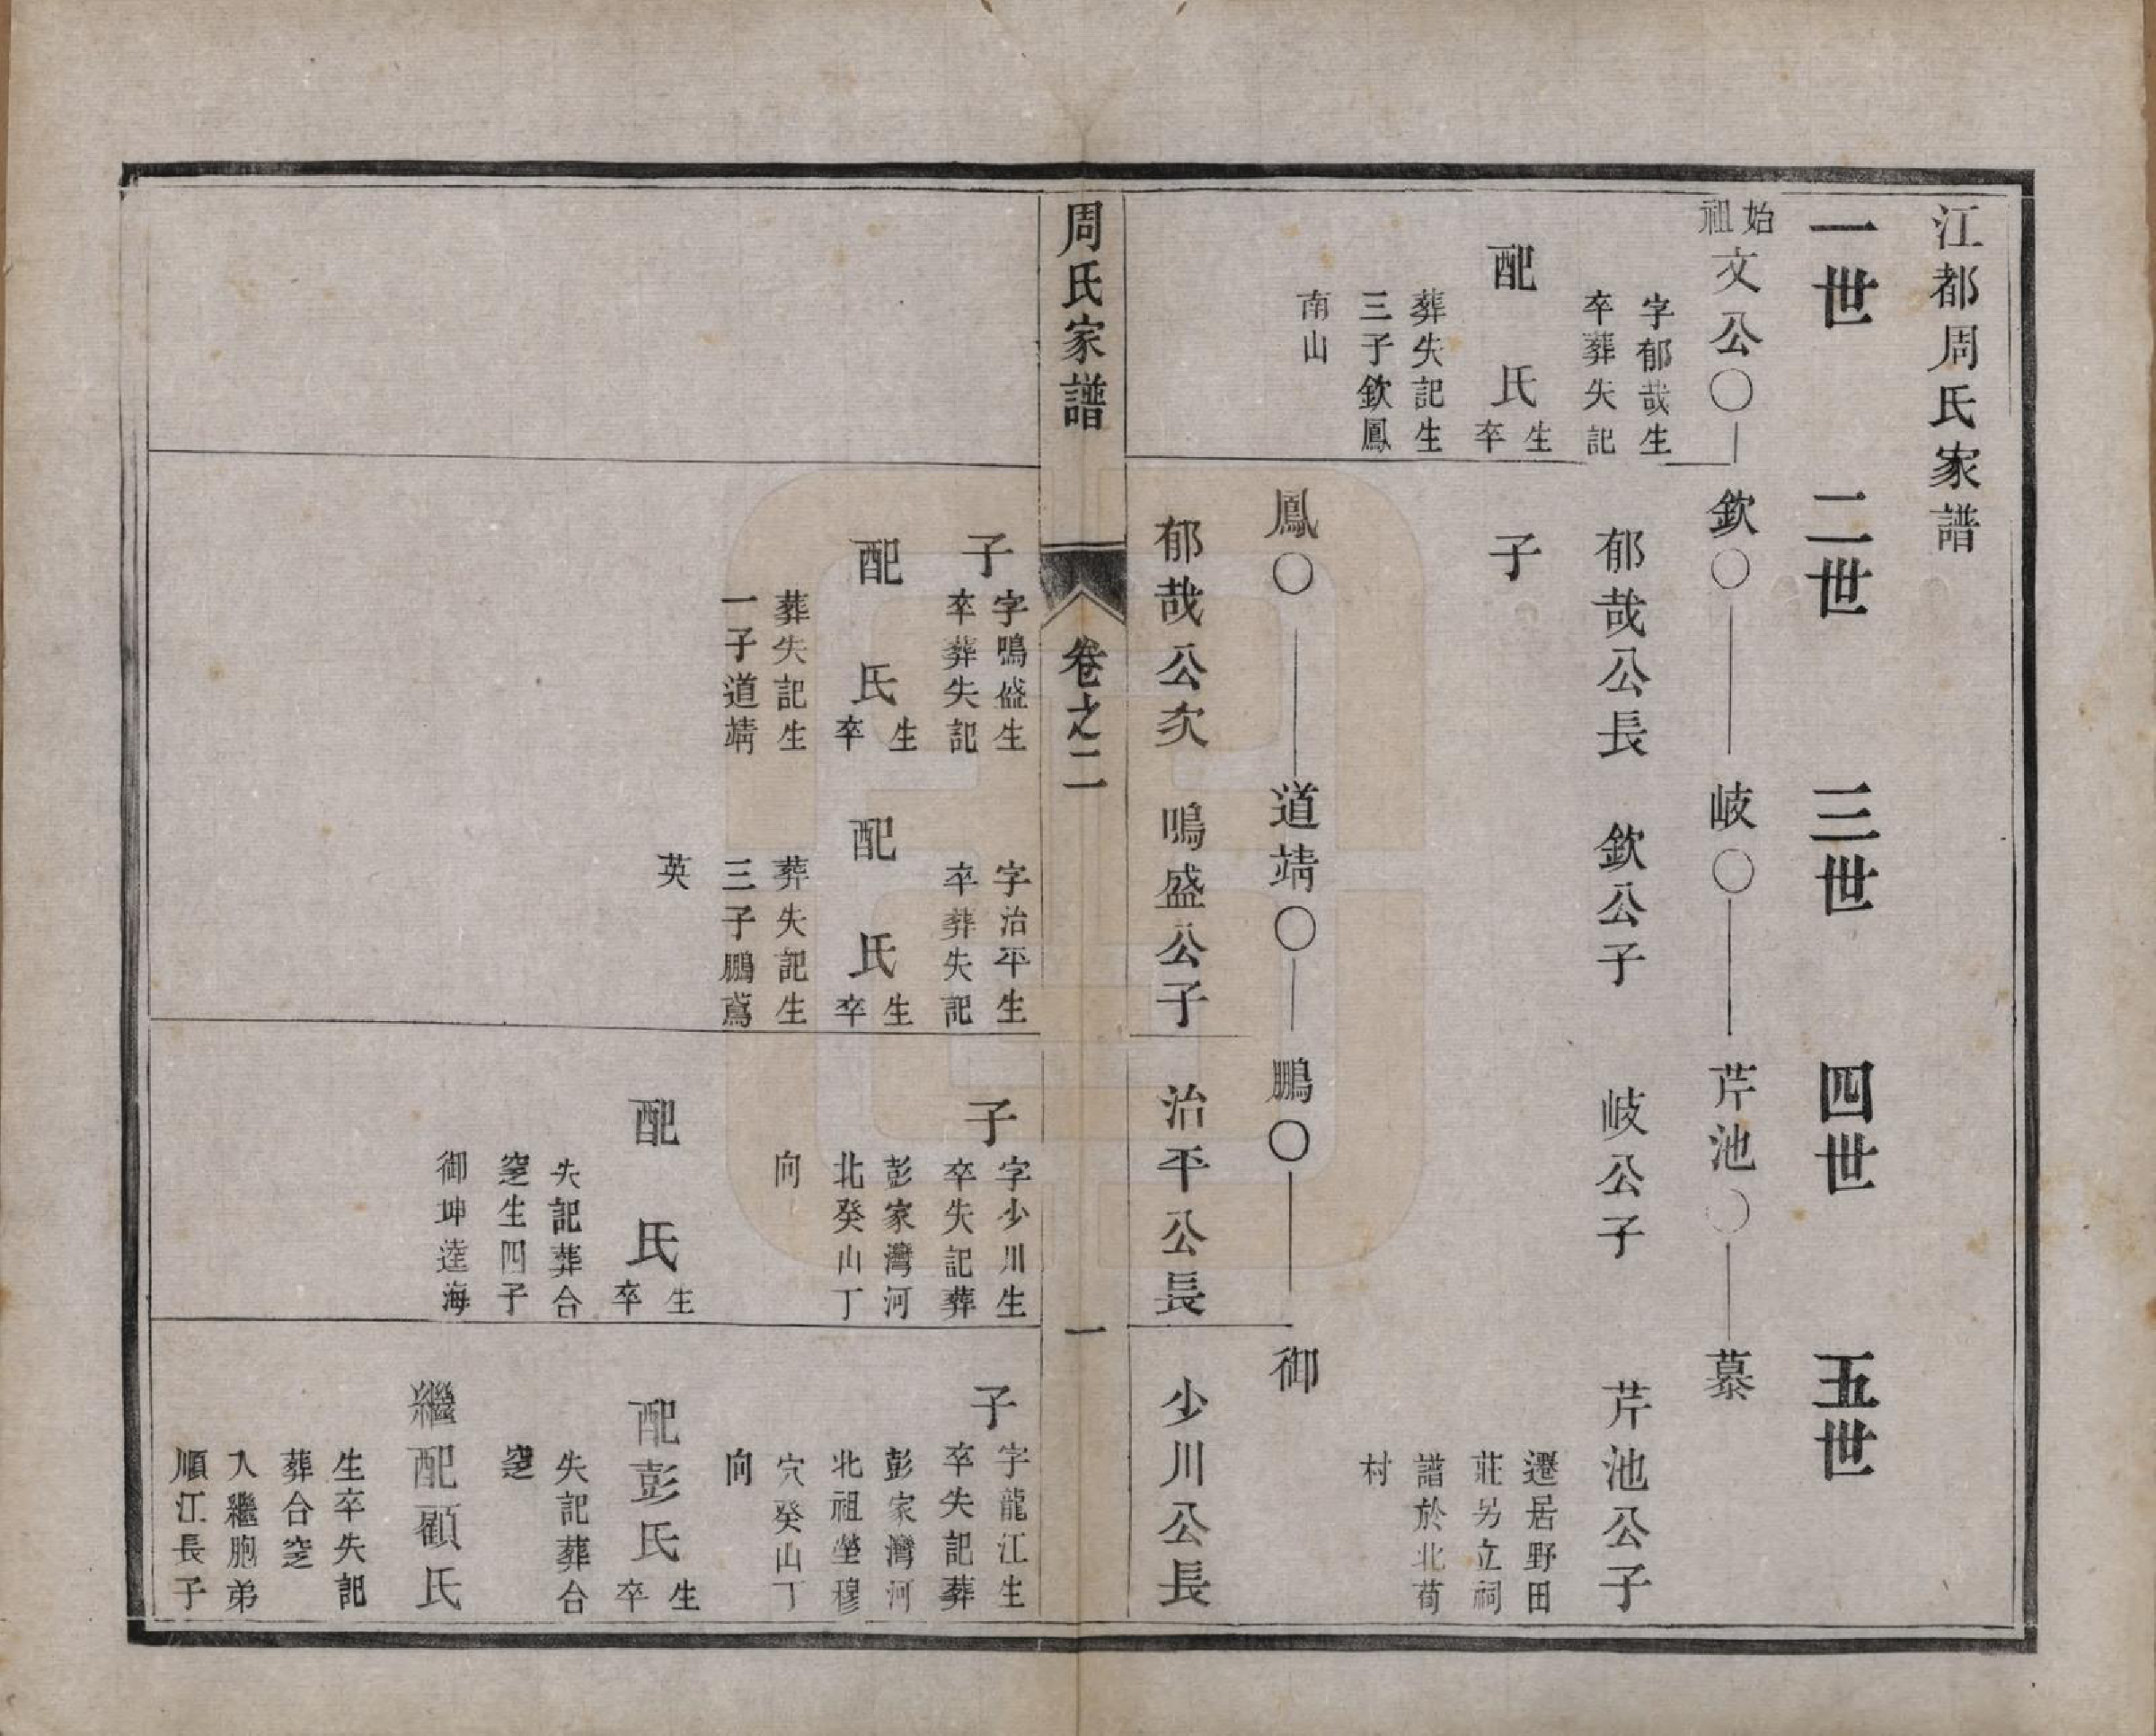 江都周氏家譜
一世
二世
三世
四世
五世
始祖
文公〇
欽〇
岐〇
芹池〇
慕
字郁哉生
卒葬失記
郁哉公長
欽公子
岐公子
芹池公子
遷居野田
莊另立祠
譜於北荀
村
配 氏生卒
葬失記生
三子欽鳳
南山
子
鳳〇
道靖〇
鵬〇
御
郁哉公次
鳴盛公子
治平公長
少川公長
周氏家譜
卷之二
一
子
字鳴盛生
卒葬失記
配 氏生卒
葬失記生
一子道靖
字治平生
卒葬失記
配 氏生卒
葬失記生
三子鵬鳶
英
子
字少川生
卒失記葬
彭家灣河
北癸山丁
向
配 氏生卒
失記葬合
窆生四子
御坤逵海
子
字龍江生
卒失記葬
彭家灣河
北祖塋穆
穴癸山丁
向
配彭氏生卒
失記葬合
窆
繼配顧氏
生卒失記
葬合窆
入繼胞弟
順江長子